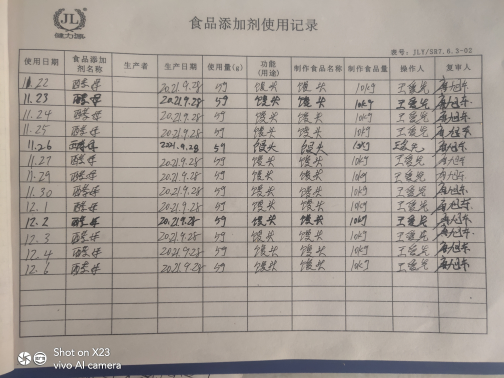 JL
健力源
食品添加剂使用记录
表号：JLY/SR7.6.3-02
使用日期 食品添加剂名称 生产者 生产日期 使用量(g) 功能(用途) 制作食品名称 制作食品量 操作人 复审人
11.22 酵母 2021.9.28 5g 馒头 馒头 10kg
11.23 酵母 2021.9.28 5g 馒头 馒头 10kg
11.24 酵母 2021.9.28 5g 馒头 馒头 10kg
11.25 酵母 2021.9.28 5g 馒头 馒头 10kg
11.26 酵母 2021.9.28 5g 馒头 馒头 10kg
11.27 酵母 2021.9.28 5g 馒头 馒头 10kg
11.29 酵母 2021.9.28 5g 馒头 馒头 10kg
11.30 酵母 2021.9.28 5g 馒头 馒头 10kg
12.1 酵母 2021.9.28 5g 馒头 馒头 10kg
12.2 酵母 2021.9.28 5g 馒头 馒头 10kg
12.3 酵母 2021.9.28 5g 馒头 馒头 10kg
12.4 酵母 2021.9.28 5g 馒头 馒头 10kg
12.6 酵母 2021.9.28 5g 馒头 馒头 10kg
Shot on X23
vivo AI camera